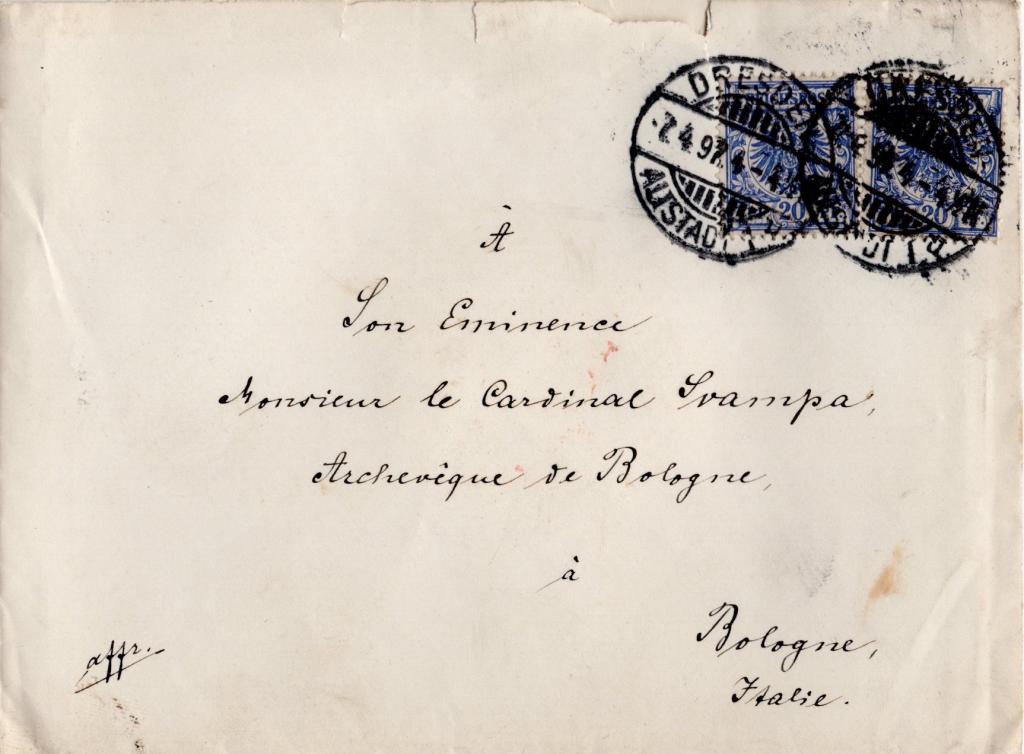 DRESDEN
7.4.97. 4-
ALTSTADT 1.
20
20
À
Son Eminence
Monsieur le Cardinal Svampa,
Archevêque de Bologne,
à
Bologne,
Italie.
affr.